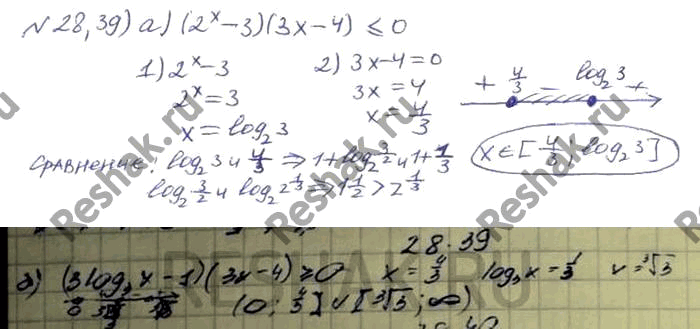 №28,39) а) (2^x − 3)(3x − 4) ≤ 0
1) 2^x − 3
2^x = 3
x = log₂ 3
2) 3x − 4 = 0
3x = 4
x = 4/3
+ 4/3 − log₂ 3 +
x ∈ [4/3, log₂ 3]
Сравнение: log₂ 3 и 4/3 ⇒ 1 + log₂ 3/2 и 1 + 1/3
log₂ 3/2 и log₂ 2^(1/3) ⇒ 1 1/2 > 2^(1/3)
28.39
б) (3log₃ x − 1)(3x − 4) ≥ 0 x = 4/3 log₃ x = 1/3 x = ³√3
(0; 4/3] ∨ [³√3; ∞)
Reshak.ru
Reshak.ru
Reshak.ru
RESHAK.RU